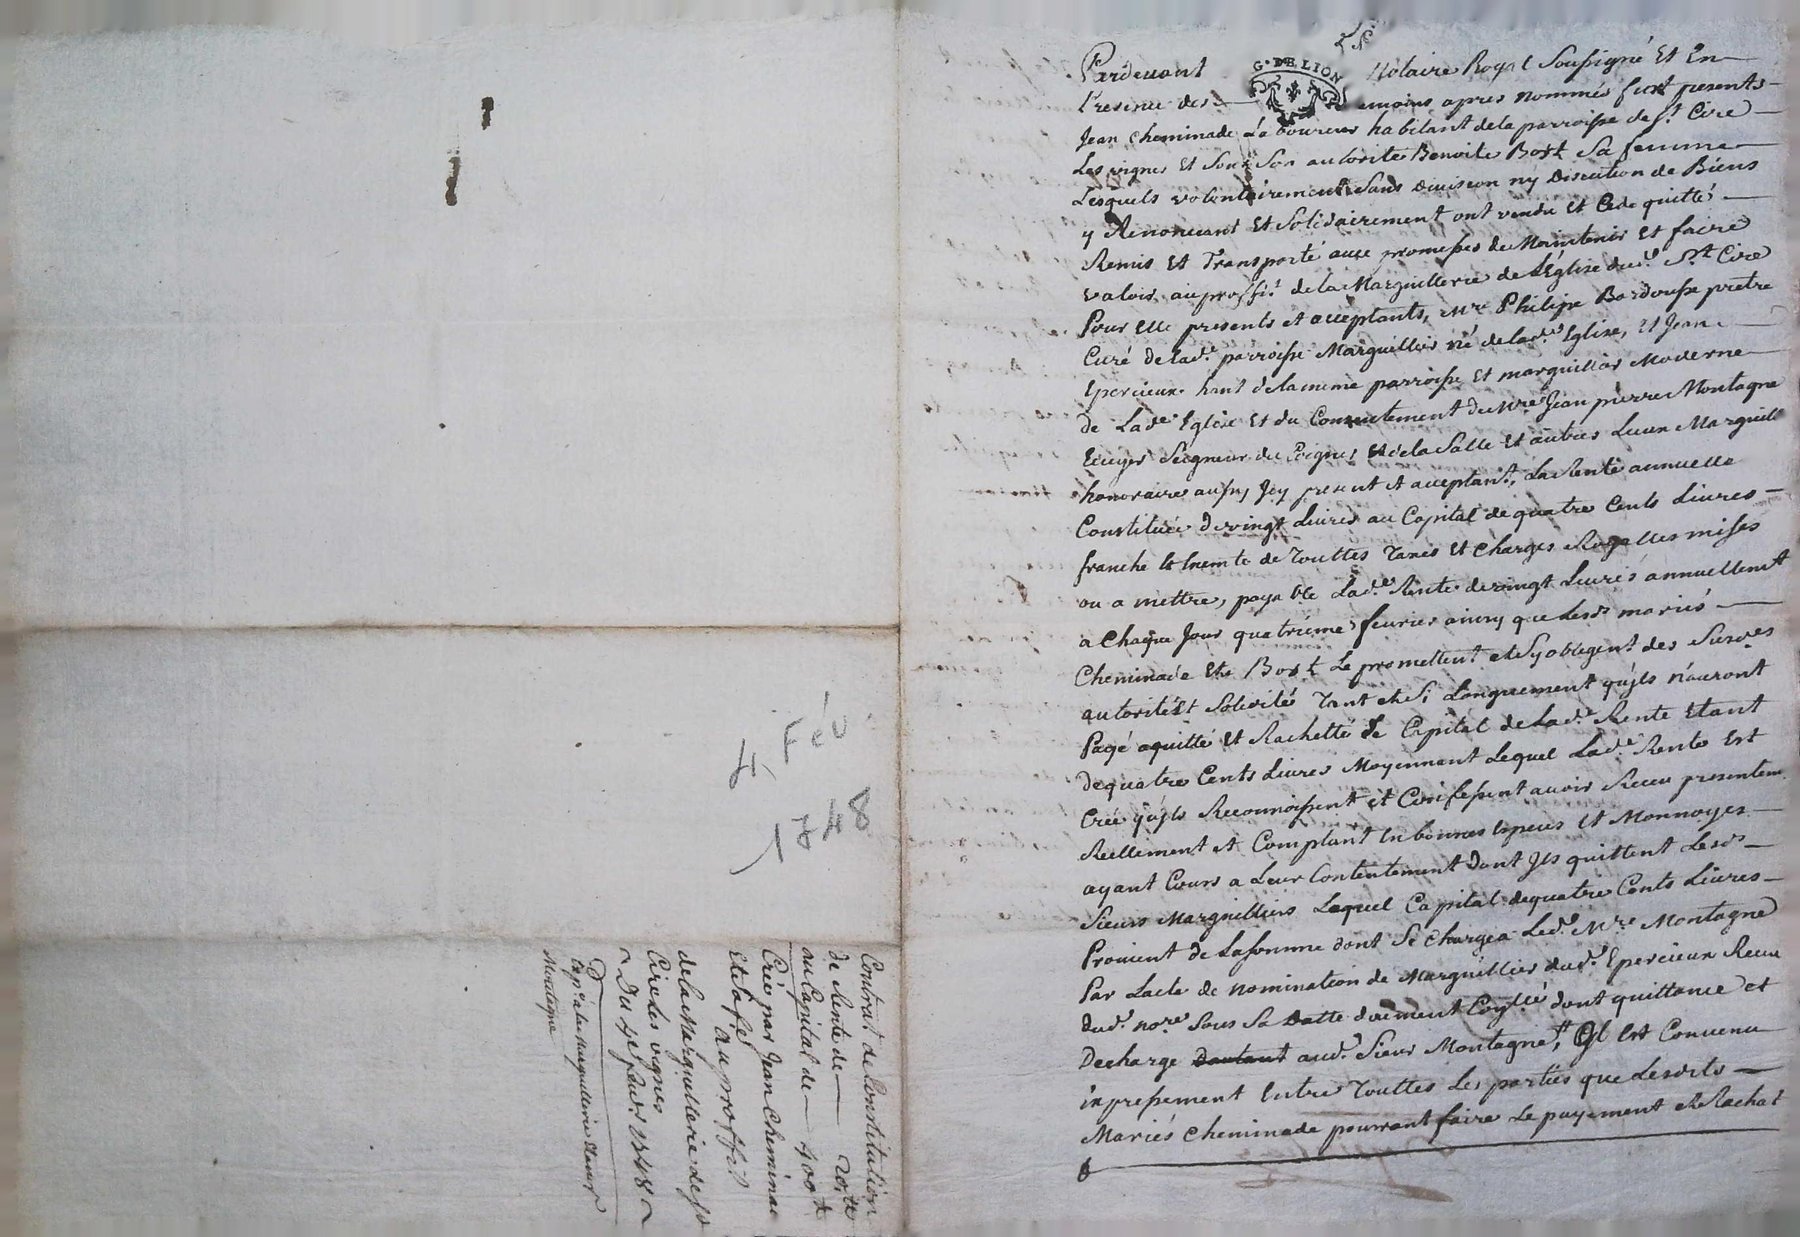 4 Fév
1748
Contrat de Constitution
de Rente de — 20 ₶
au Capital de — 400 ₶
Créé par Jean Cheminade
et sa fe
au proffit
de la Marguillerie de St
Cire les vignes
Du 4e fevr 1748
Exp.on a la Marguillerie
Montagne
G. DE LION
Pardevant Notaire Royal Soussigné Et En
Presence des temoins apres nommés furt presents
Jean Cheminade Laboureur habitant de la parroisse de St Cire
Les vignes Et Sous Son autorité Benoite Bost Sa femme
Lesquels volontairement Sans Division ny Discution de Biens
y Renonceant Et Solidairement ont vendu Et Cede quitté
Remis Et Transporté avec promesses de Maintenir Et faire
valoir au proffit de la Marguillerie de L'Eglise dud. St Cire
Pour Elle presents et acceptants, Mre Philipe Bardousse pretre
Curé de lad.e parroisse Marguillier né de lad.e Eglise, Et Jean
Epercieux hant de la meme parroisse Et marguillier Moderne
de Lad.e Eglise Et du Consentement de Mre Jean pierre Montagne
Ecuyer Seigneur de Poignes Et de la Salle Et autres Lieux Marguill
honoraire aussy Jcy present et acceptant, La Rente annuelle
Constituée de vingt Livres au Capital de quatre Cents Livres
franche Et Exempte de Touttes Taxes Et Charges Royalles mises
ou a mettre, payable Lad.e Rente de vingt Livres annuellemt
a Chaque Jour quatrieme fevrier ainsy que Lesd. mariés
Cheminade Et Bost Le promettent et Sy obligent des Susd.es
autorité Et Solidité Tant et Si Longuement qu'jls n'auront
Payé aquitté Et Rachetté Le Capital de Lad.e Rente Etant
de quatre Cents Livres Moyennant Lequel Lad.e Rente Est
Créé qu'jls Reconnoissent et Confessent avoir Receu presentem
Reellement et Comptant En bonnes Especes Et Monnoyes
ayant Cours a Leur Contentement Dont Jls quittent Lesd.
Sieurs Marguilliers Lequel Capital de quatre Cents Livres
Provient de La Somme dont Se Chargea Led. Mre Montagne
Par Lacte de nomination de Marguillier dud. Epercieux Receu
dud. nore Sous Sa Datte duement Con.lé dont quittance et
Decharge Dautant aud. Sieur Montagne, Jl Est Convenu
inpressement Entre Touttes Les parties que Lesdits
Mariés Cheminade pourront faire Le payement et Rachat